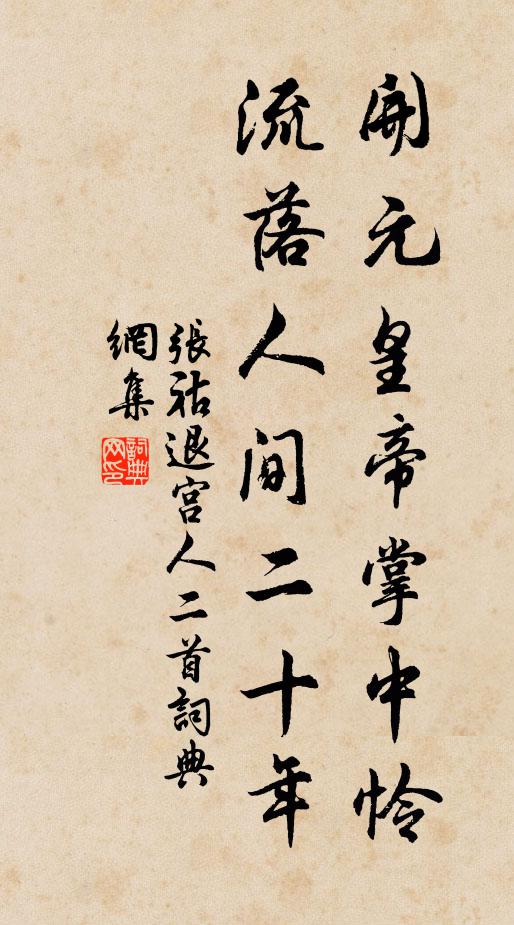 開元皇帝掌中怜
流落人间二十年
張祜退宫人二首詞典
網集
詞典网印